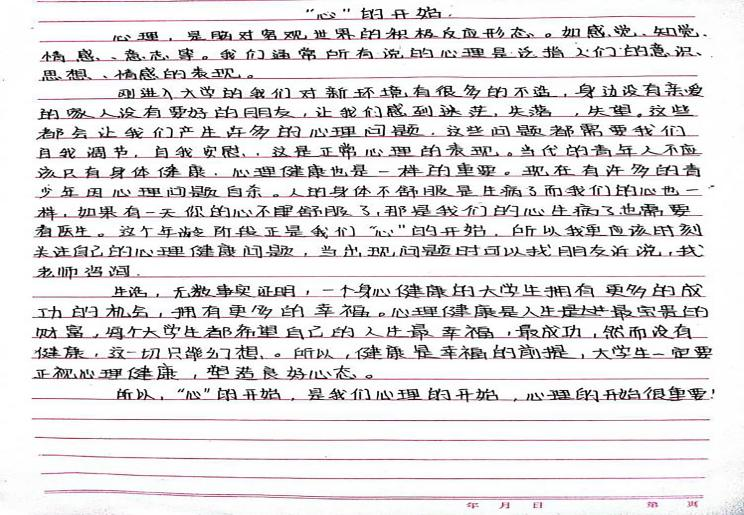 “心”的开始.
心理，是脑对客观世界的积极反应形态。如感觉、知觉、
情感、意志等。我们通常所有说的心理是泛指人们的意识、
思想、情感的表现。
刚进入大学的我们对新环境有很多的不适，身边没有亲爱
的家人没有要好的朋友，让我们感到迷茫，失落，失望。这些
都会让我们产生许多的心理问题．这些问题都需要我们
自我调节，自我安慰．．这是正常心理的表现。当代的青年人不应
该只有身体健康．心理健康也是一样的重要。现在有许多的青
少年因心理问题自杀。人的身体不舒服是生病了而我们的心也一
样，如果有一天你的心不舒服了，那是我们的心生病了也需要
看医生。这个年龄阶段正是我们“心”的开始，所以我更应该时刻
关注自己的心理健康问题，当出现问题时可以找朋友诉说，找
老师咨询．
生活，无数事实证明，一个身心健康的大学生拥有更多的成
功的机会，拥有更多的幸福。心理健康是人生最宝贵的
财富，每个大学生都希望自己的人生最幸福，最成功，然而没有
健康，这一切只能幻想。所以，健康是幸福的前提，大学生一定要
正视心理健康，塑造良好心态。
所以，“心”的开始，是我们心理的开始，心理的开始很重要！
年 月 日 第 页